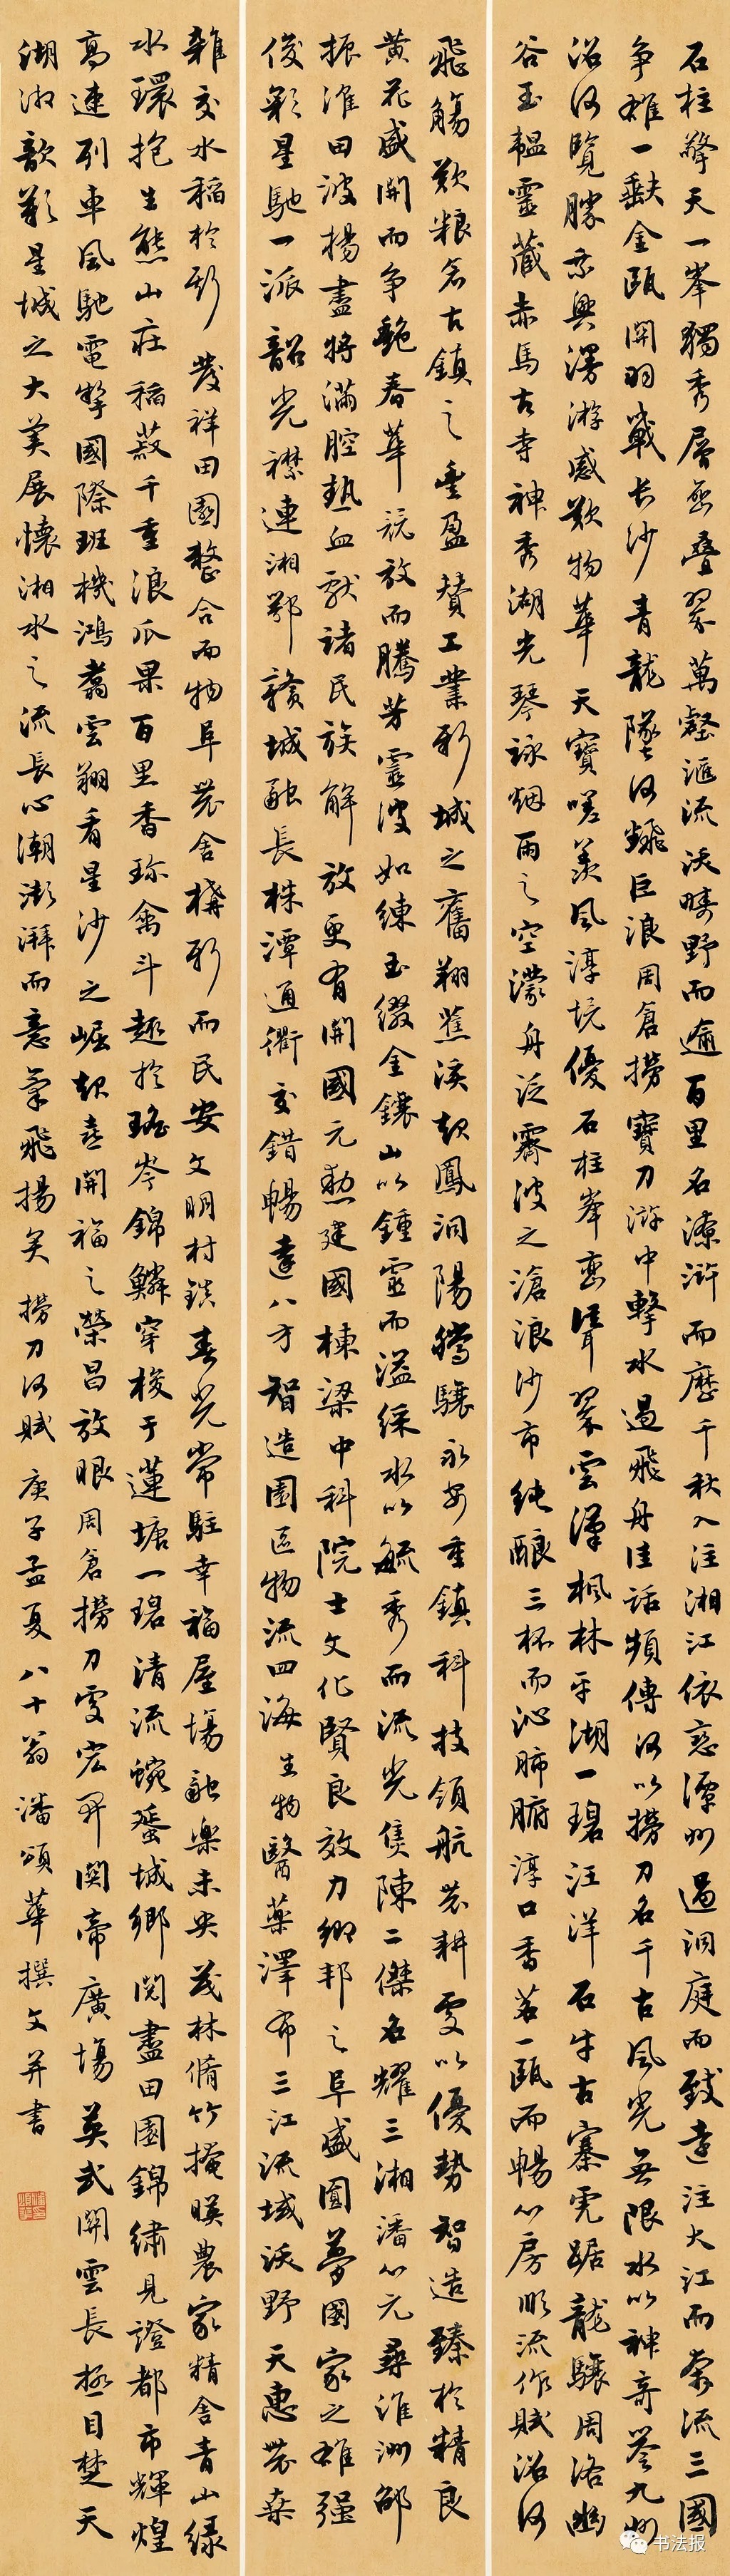 石柱擎天一峯獨秀層巒疊翠萬壑滙流沃疇野而逾百里名潦滸而歷千秋入注湘江依戀潭州過洞庭而致遠注大江而奔流三國
争雄一缺金甌開羽戰长沙青龍墜河飜巨浪周倉撈寶刀游中擊水過飛舟佳話頻傳河以撈刀名千古風光無限水以神奇譽九州
沿河覽勝乘興漫游感歎物華天寶嗟羨風淳境優石柱峯峦聳翠雲漢楓林平湖一碧汪洋石牛古寨虎踞龍驤周洛幽
谷玉韞靈藏赤馬古寺神秀湖光琴詠烟雨之空濛舟泛霽波之滄浪沙市純酿三杯而沁肺腑淳口香茗一甌而暢心房順流作賦沿河
飛觴歎粮倉古鎮之豐盈贊工業新城之奮翔蕉溪起鳳洞陽騰驤永安重鎮科技領航農耕更以優勢智造臻於精良
黄花盛開而争艷春華競放而騰芳靈波如練玉綴金鑲山以鍾靈而溢綵水以毓秀而流光隻陳二傑名耀三湘潘心元尋淮洲鄉
振淮田波揚盡將滿腔熱血獻諸民族解放更有開國元勳建國棟梁中科院士文化賢良效力鄉邦之阜盛圆夢國家之雄强
俊彩星馳一派韶光襟連湘鄂赣城融長株潭通衢交錯暢達八方智造園區物流四海生物醫藥澤布三江流域沃野天惠農桑
雜交水稲於彩發祥田園整合而物阜農舍構新而民安文明村鎮春光常駐幸福屋場融樂未央茂林脩竹掩暎農家精舍青山緑
水環抱生態山莊稲菽千重浪瓜果百里香珎禽斗趣於瑤岑錦鱗穿梭于蓮塘一碧清流蜿蜑城鄉閱盡田園錦绣見證都市輝煌
高速列車風馳電掣國際班機鴻翥雲翔看星沙之崛起喜開福之榮昌放眼周倉撈刀更宏開関帝廣塲英武関雲長極目楚天
湖湘歆彩星城之大美展懷湘水之流長心潮澎湃而意氣飛揚矣撈刀河賦庚子孟夏八十翁潘頌華撰文并書
书法报